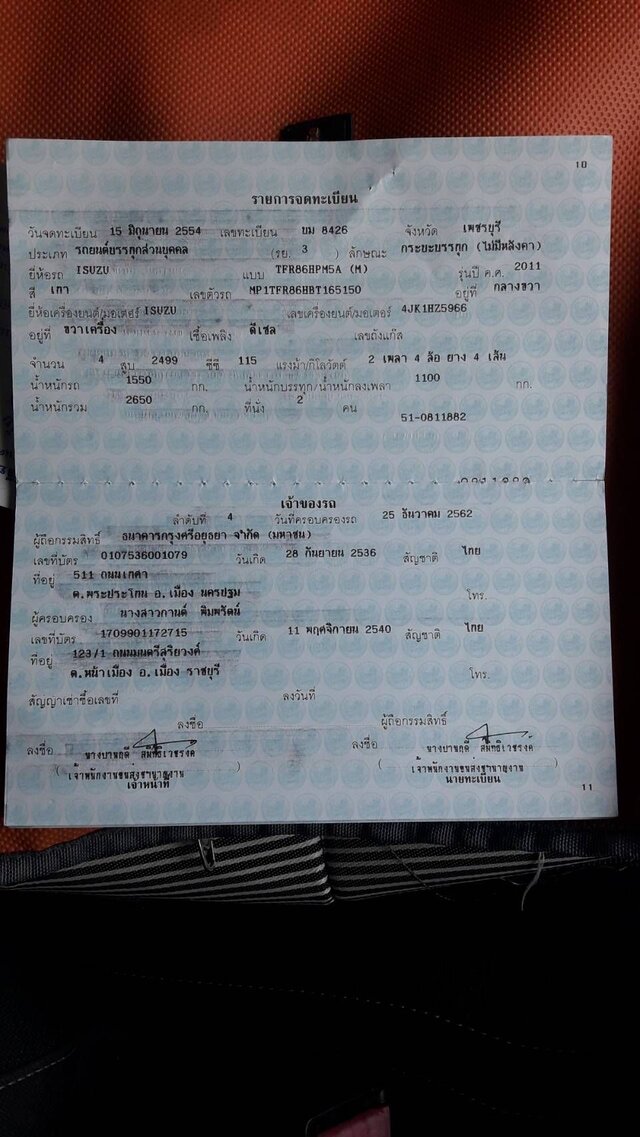 10
รายการจดทะเบียน
วันจดทะเบียน 15 มิถุนายน 2554 เลขทะเบียน บม 8426 จังหวัด เพชรบุรี
ประเภท รถยนต์บรรทุกส่วนบุคคล (รย. 3 ) ลักษณะ กระบะบรรทุก (ไม่มีหลังคา)
ยี่ห้อรถ ISUZU แบบ TFR86HPM5A (M) รุ่นปี ค.ศ. 2011
สี เทา เลขตัวรถ MP1TFR86HBT165150 อยู่ที่ กลางขวา
ยี่ห้อเครื่องยนต์/มอเตอร์ ISUZU เลขเครื่องยนต์/มอเตอร์ 4JK1HZ5966
อยู่ที่ ขวาเครื่อง เชื้อเพลิง ดีเซล เลขถังแก๊ส
จำนวน 4 สูบ 2499 ซีซี 115 แรงม้า/กิโลวัตต์ 2 เพลา 4 ล้อ ยาง 4 เส้น
น้ำหนักรถ 1550 กก. น้ำหนักบรรทุก/น้ำหนักลงเพลา 1100 กก.
น้ำหนักรวม 2650 กก. ที่นั่ง 2 คน
51-0811882
เจ้าของรถ
ลำดับที่ 4 วันที่ครอบครองรถ 25 ธันวาคม 2562
ผู้ถือกรรมสิทธิ์ ธนาคารกรุงศรีอยุธยา จำกัด (มหาชน)
เลขที่บัตร 0107536001079 วันเกิด 28 กันยายน 2536 สัญชาติ ไทย
ที่อยู่ 511 ถนนเทศา
ต.พระประโทน อ.เมือง นครปฐม โทร.
ผู้ครอบครอง นางสาวกานต์ พิมพรัตน์
เลขที่บัตร 1709901172715 วันเกิด 11 พฤศจิกายน 2540 สัญชาติ ไทย
ที่อยู่ 123/1 ถนนมนตรีสุริยวงค์
ต.หน้าเมือง อ.เมือง ราชบุรี โทร.
สัญญาเช่าซื้อเลขที่ ลงวันที่
ลงชื่อ ผู้ถือกรรมสิทธิ์
ลงชื่อ ลงชื่อ
( เจ้าพนักงานขนส่งชำนาญงาน ) ( เจ้าพนักงานขนส่งชำนาญงาน )
เจ้าหน้าที่ นายทะเบียน
11